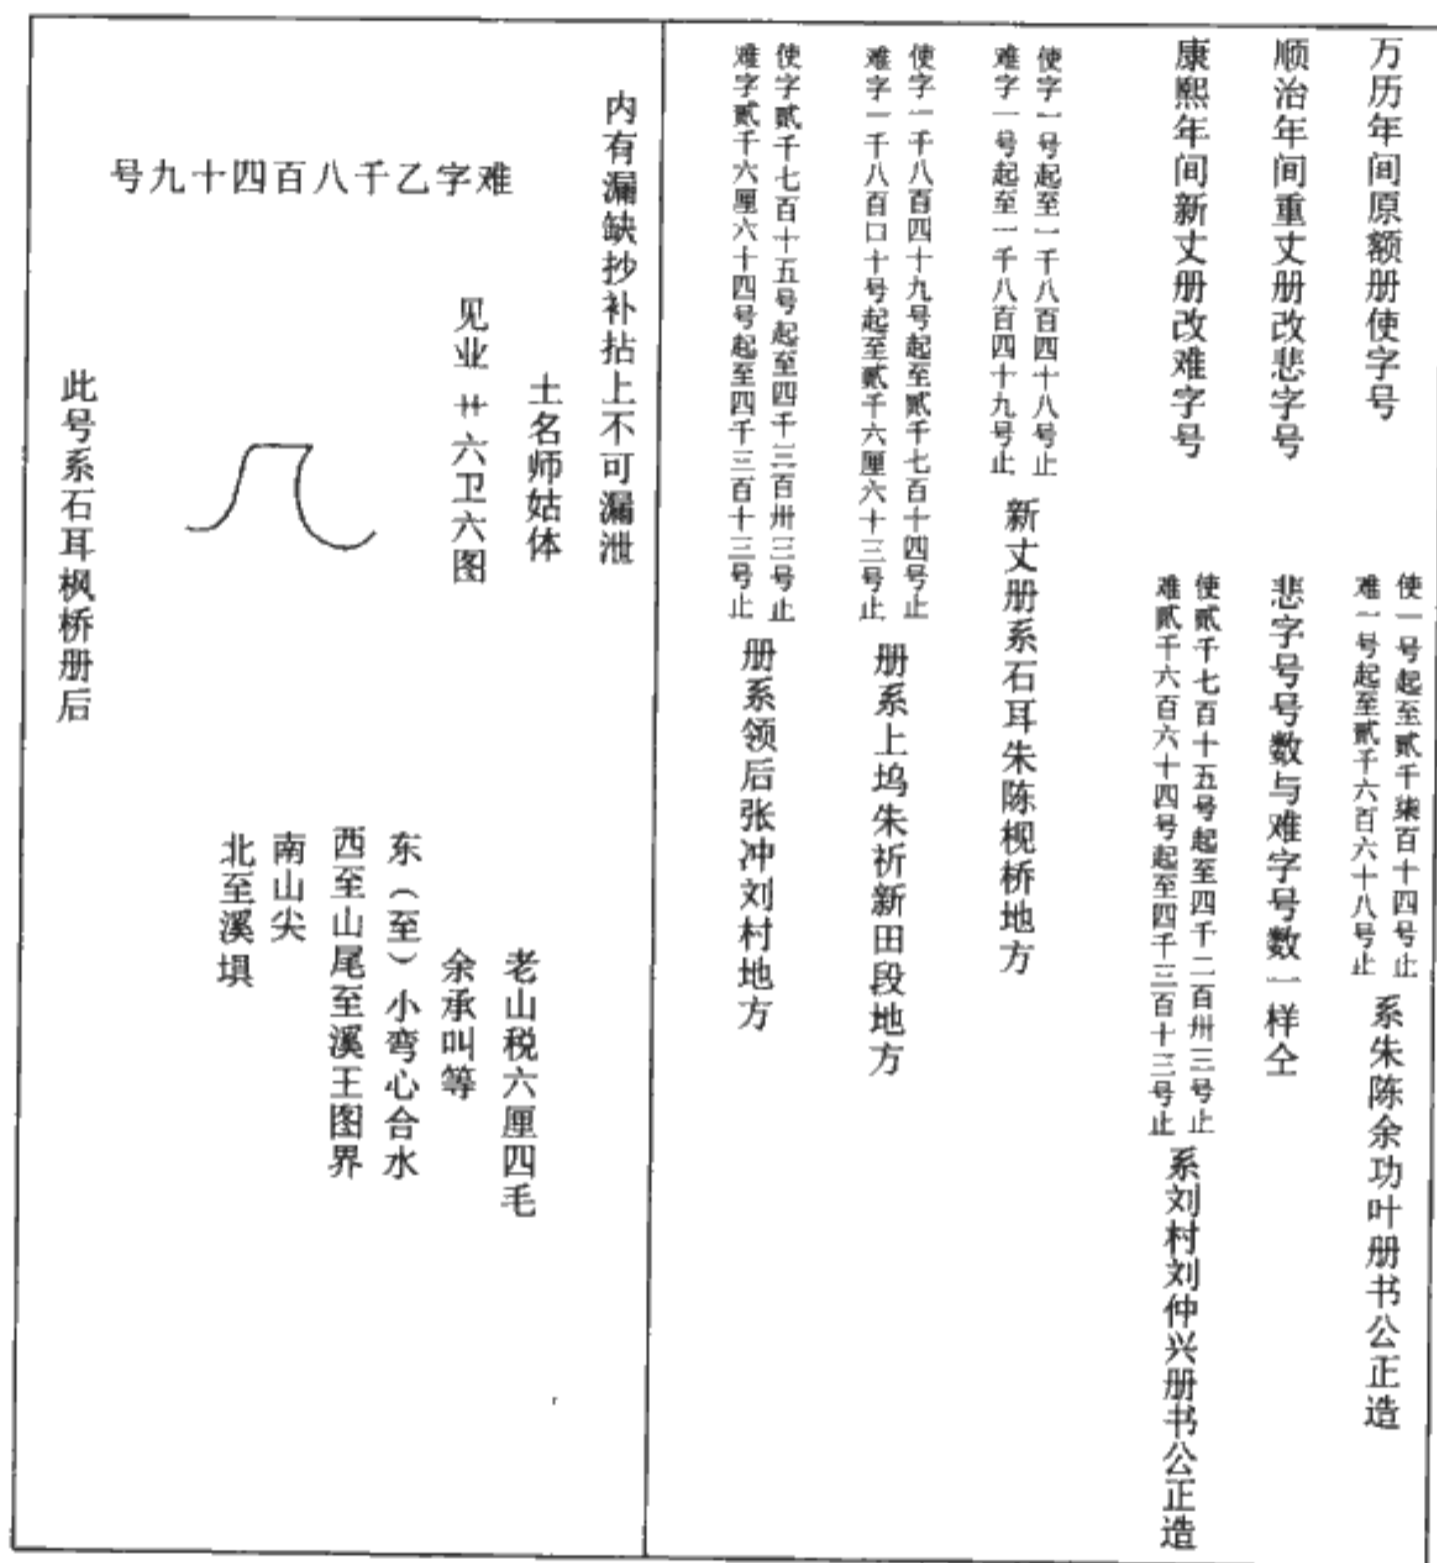 万历年间原额册使字号
使一号起至贰千柒百十四号止
难一号起至贰千六百六十八号止
系朱陈余功叶册书公正造
顺治年间重丈册改悲字号
悲字号号数与难字号数一样仝
康熙年间新丈册改难字号
使贰千七百十五号起至四千二百卅三号止
难贰千六百六十四号起至四千三百十三号止
系刘村刘仲兴册书公正造
使字一号起至一千八百四十八号止
难字一号起至一千八百四十九号止
新丈册系石耳朱陈枧桥地方
使字一千八百四十九号起至贰千七百十四号止
难字一千八百口十号起至贰千六厘六十三号止
册系上坞朱祈新田段地方
使字贰千七百十五号起至四千三百卅三号止
难字贰千六厘六十四号起至四千三百十三号止
册系领后张冲刘村地方
内有漏缺抄补拈上不可漏泄
难字乙千八百四十九号
土名师姑体
老山税六厘四毛
见业卄六卫六图
余承叫等
东（至）小弯心合水
西至山尾至溪王图界
南山尖
北至溪埧
此号系石耳枫桥册后